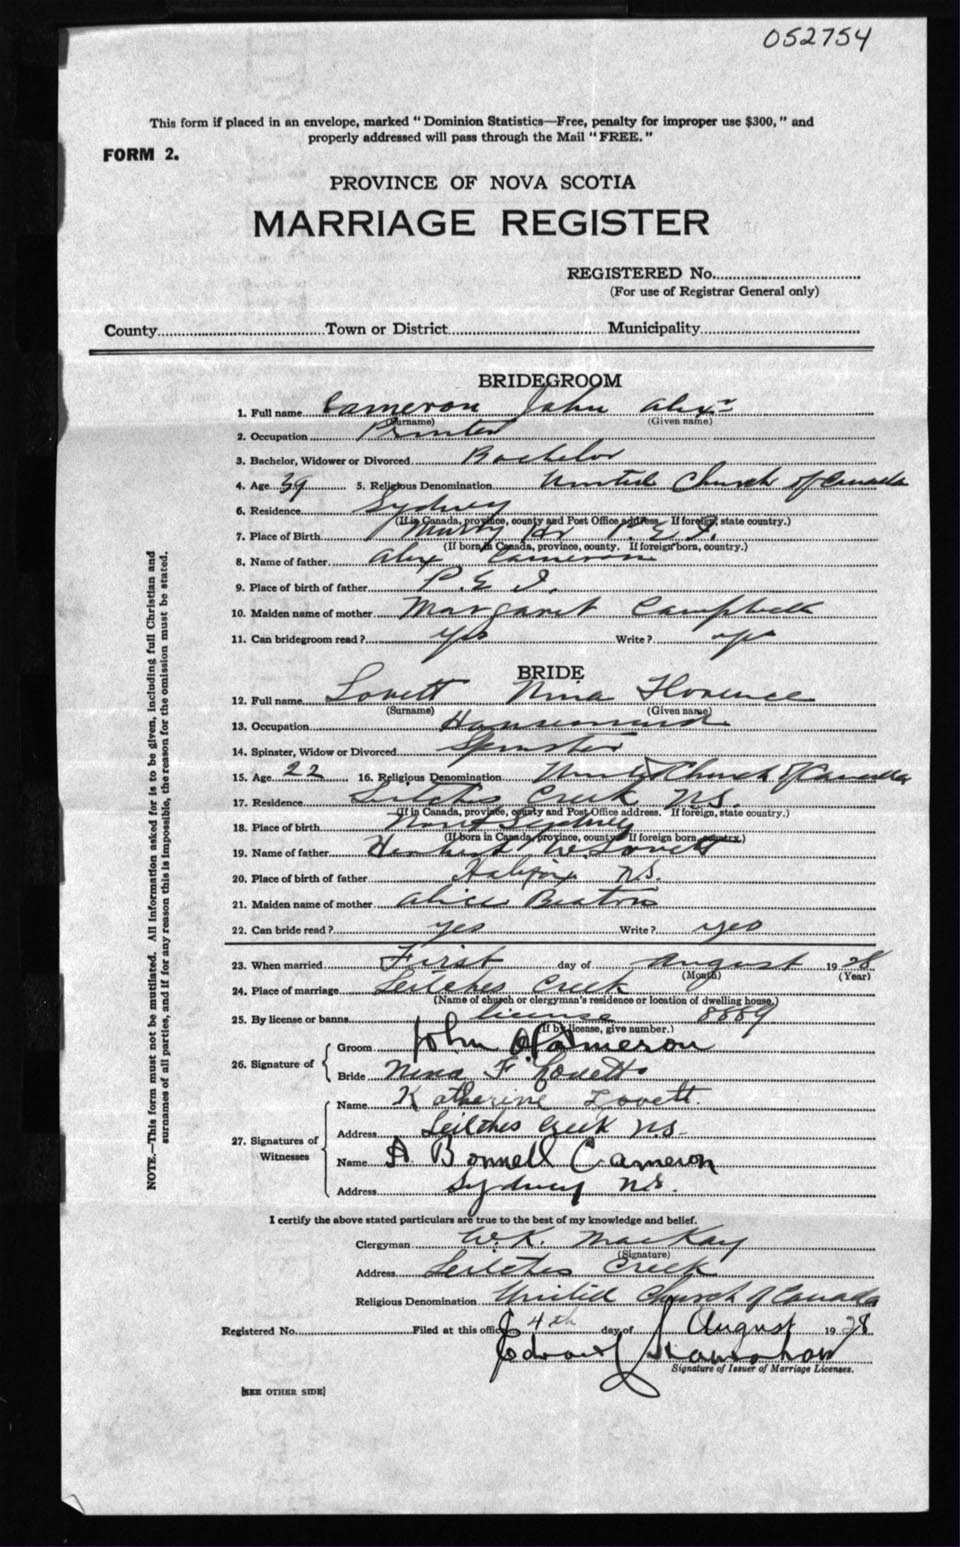 052754
This form if placed in an envelope, marked "Dominion Statistics—Free, penalty for improper use $300," and
properly addressed will pass through the Mail "FREE."
FORM 2.
PROVINCE OF NOVA SCOTIA
MARRIAGE REGISTER
REGISTERED No.
(For use of Registrar General only)
County Town or District Municipality
BRIDEGROOM
1. Full name Cameron John Alexr
(Surname) (Given name)
2. Occupation Printer
3. Bachelor, Widower or Divorced Bachelor
4. Age 39 5. Religious Denomination United Church of Canada
6. Residence Sydney
(If in Canada, province, county and Post Office address. If foreign, state country.)
7. Place of Birth Murry Hr P.E.I.
(If born in Canada, province, county. If foreign born, country.)
8. Name of father Alex Cameron
9. Place of birth of father P.E.I.
10. Maiden name of mother Margaret Campbell
11. Can bridegroom read? yes Write? yes
BRIDE
12. Full name Lovett Nina Florence
(Surname) (Given name)
13. Occupation Housemaid
14. Spinster, Widow or Divorced Spinster
15. Age 22 16. Religious Denomination United Church of Canada
17. Residence Leitches Creek N.S.
(If in Canada, province, county and Post Office address. If foreign, state country.)
18. Place of birth North Sydney
(If born in Canada, province, county. If foreign born, country.)
19. Name of father Herbert W. Lovett
20. Place of birth of father Halifax N.S.
21. Maiden name of mother Alice Beaton
22. Can bride read? yes Write? yes
23. When married First day of August 1928
(Month) (Year)
24. Place of marriage Leitches Creek
(Name of church or clergyman's residence or location of dwelling house.)
25. By license or banns license 8889
(If by license, give number.)
26. Signature of Groom John A Cameron
Bride Nina F. Lovett
27. Signatures of Witnesses
Name Katherine Lovett.
Address Leitches Creek N.S.
Name A Bonnell Cameron
Address Sydney N.S.
I certify the above stated particulars are true to the best of my knowledge and belief.
Clergyman W.K. MacKay
(Signature)
Address Leitches Creek
Religious Denomination United Church of Canada
Registered No. Filed at this office 4th day of August 1928
Edward
Signature of Issuer of Marriage Licenses.
[SEE OTHER SIDE]
NOTE.—This form must not be mutilated. All information asked for is to be given, including full Christian and
surnames of all parties, and if for any reason this is impossible, the reason for the omission must be stated.